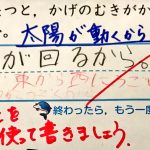 つと、かげのむきがか
。太陽が動くから
が回るから。
東から西に
を
終わったら、もう一度
使って書きましょう。